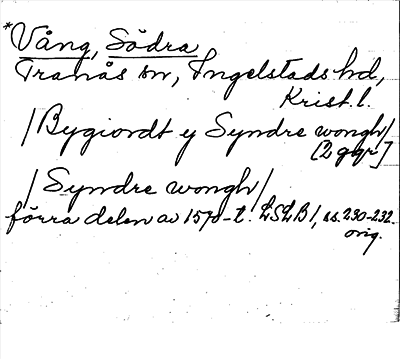 *Vång, Södra
Tranås sn, Ingelstads hd,
Krist. l.
/Bygiordt y Syndre wongh/
[2 ggr]
/Syndre wongh/
förra delen av 1570-t. LSLB 1, ss. 230-232.
orig.